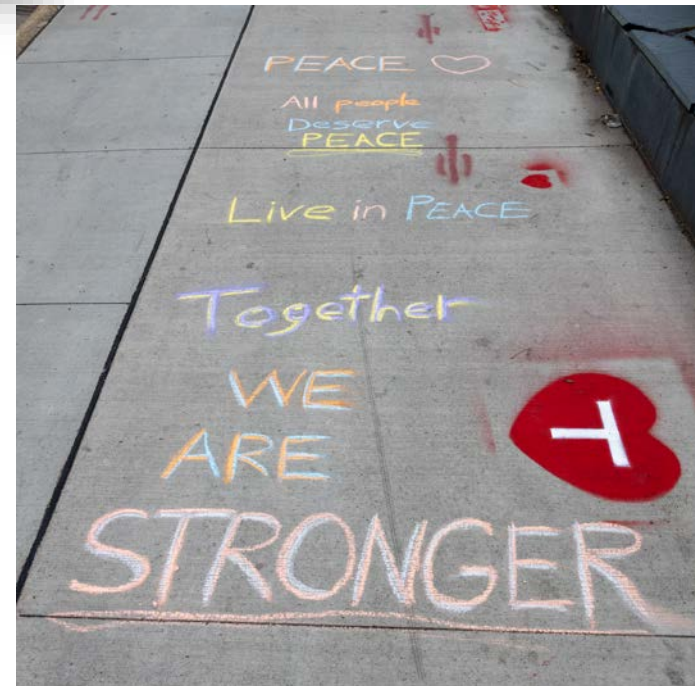 PEACE ♡
All people
Deserve
PEACE
Live in PEACE
Together
WE
ARE
STRONGER
T